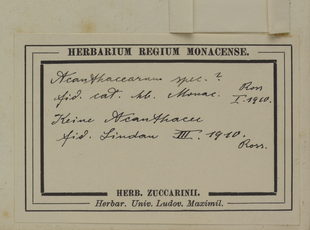 HERBARIUM REGIUM MONACENSE.
Acanthacearum spec.?
fid. cat. hb. Monac. Ross
I. 1910.
Keine Acanthacee
fid. Lindau III. 1910.
Ross.
HERB. ZUCCARINII.
Herbar. Univ. Ludov. Maximil.